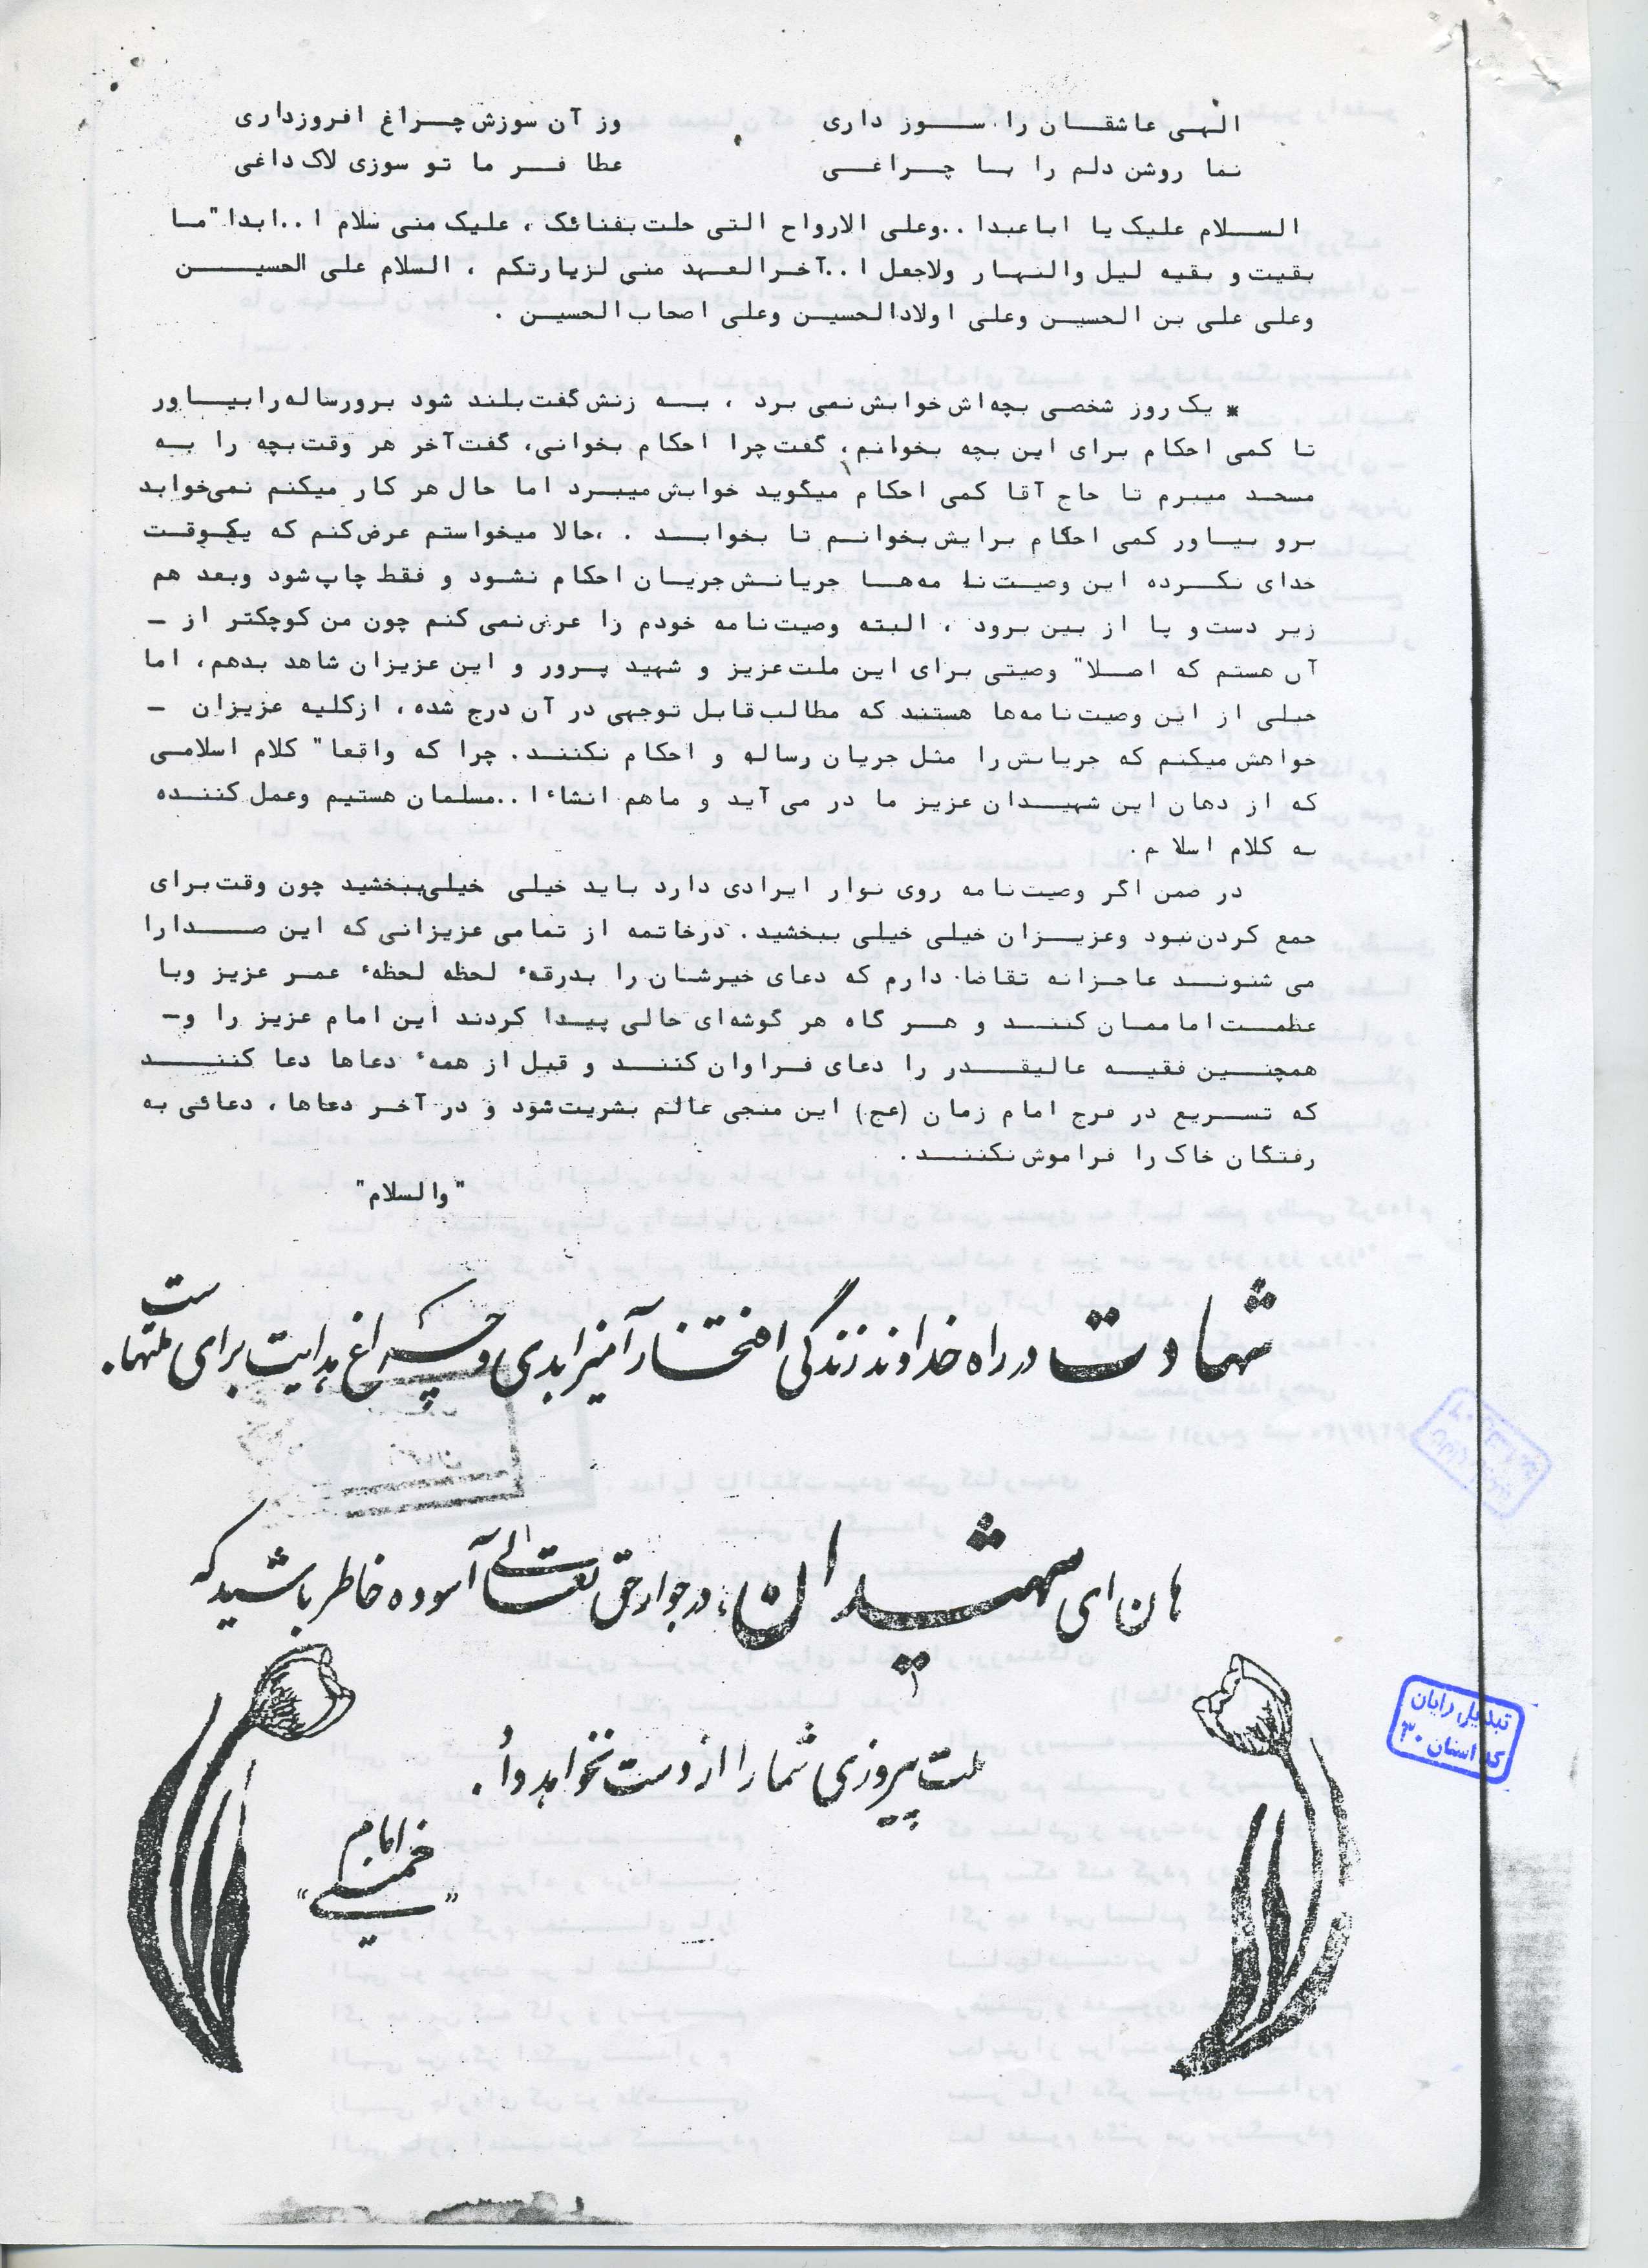 الهی عاشقان را سوز داری وز آن سوزش چراغ افروزداری
نما روشن دلم را با چراغی عطا فرما تو سوزی لاک داغی
السلام علیک یا اباعبدا..وعلی الارواح التی حلت بفنائک ، علیک منی سلام ا..ابدا" ما
بقیت و بقیه لیل والنهار ولاجعل ا..آخرالعهد منی لزیارتکم ، السلام علی الحسین
وعلی علی بن الحسین وعلی اولادالحسین وعلی اصحاب الحسین .
* یک روز شخصی بچه‌اش خوابش نمی برد ، به زنش گفت بلند شود برورساله را بیاور
تا کمی احکام برای این بچه بخوانم، گفت چرا احکام بخوانی، گفت آخر هر وقت بچه را به
مسجد میبرم تا حاج آقا کمی احکام میگوید خوابش میبرد اما حال هر کار میکنم نمی‌خوابد
برو بیاور کمی احکام برایش بخوانم تا بخوابد . ،حالا میخواستم عرض کنم که یکوقت
خدای نکرده این وصیت‌نا مه‌ها جریانش جریان احکام نشود و فقط چاپ شود وبعد هم
زیر دست و پا از بین برود ، البته وصیت‌نامه خودم را عرض نمی کنم چون من کوچکتر از -
آن هستم که اصلا" وصیتی برای این ملت عزیز و شهید پرور و این عزیزان شاهد بدهم، اما
خیلی از این وصیت‌نامه‌ها هستند که مطالب قابل توجهی در آن درج شده ، ازکلیه عزیزان -
خواهش میکنم که جریانش را مثل جریان رساله و احکام نکنند. چرا که واقعا" کلام اسلامی
که از دهان این شهیدان عزیز ما در می آید و ماهم انشاء ا..مسلمان هستیم وعمل کننده
به کلام اسلام.
در ضمن اگر وصیت‌نامه روی نوار ایرادی دارد باید خیلی خیلی ببخشید چون وقت برای
جمع کردن نبود وعزیزان خیلی خیلی ببخشید. درخاتمه از تمامی عزیزانی که این صدارا
می شنوند عاجزانه تقاضا دارم که دعای خیرشان را بدرقهء لحظه لحظهء عمر عزیز وبا
عظمت امامان کنند و هر گاه هر گوشه‌ای خالی پیدا کردند این امام عزیز را و-
همچنین فقیه عالیقدر را دعای فراوان کنند و قبل از همهء دعاها دعا کنند
که تسریع در فرج امام زمان (عج) این منجی عالم بشریت شود و در آخر دعاها، دعائی به
رفتگان خاک را فراموش نکنند.
"والسلام"
شهادت در راه خداوند زندگی افتخارآمیز ابدی و چراغ هدایت برای ملتهاست.
هان ای شهیدان، در جوار حق تعالی آسوده خاطر باشید که
ملت پیروزی شما را از دست نخواهد داد.
امام
"خمینی"
تبدیل رایان
کد استان ۳۰